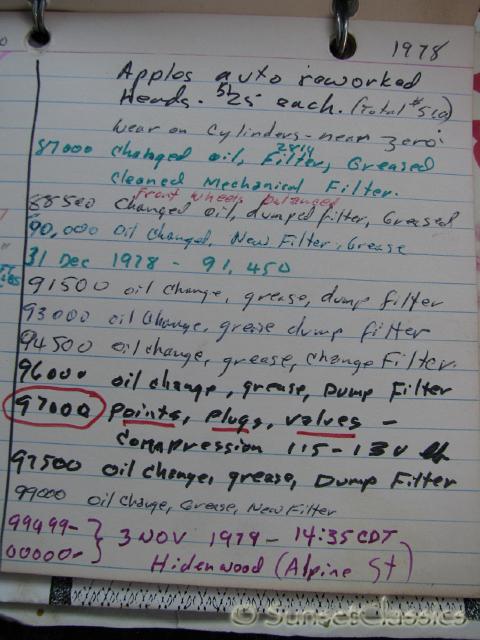 1978
Apples auto reworked
Heads. $25 each. (Total $510)
Wear on Cylinders - near zero.
2814
87000 changed oil, Filter, Greased
Cleaned Mechanical Filter.
Front wheels balanced
88500 Changed Oil, dumped filter, Greased
90,000 oil changed, New Filter, Grease
31 Dec 1978 - 91,450
91500 oil change, grease, dump filter
93000 oil change, grease dump filter
94500 oil change, grease, change Filter.
96000 oil change, grease, Dump Filter
97000 points, plugs, valves -
compression 115-130
97500 oil change, grease, Dump Filter
99000 oil change, Grease, New Filter
99999-
00000- } 3 NOV 1979 - 14:35 CDT
Hidenwood (Alpine St)
© SunsetClassics